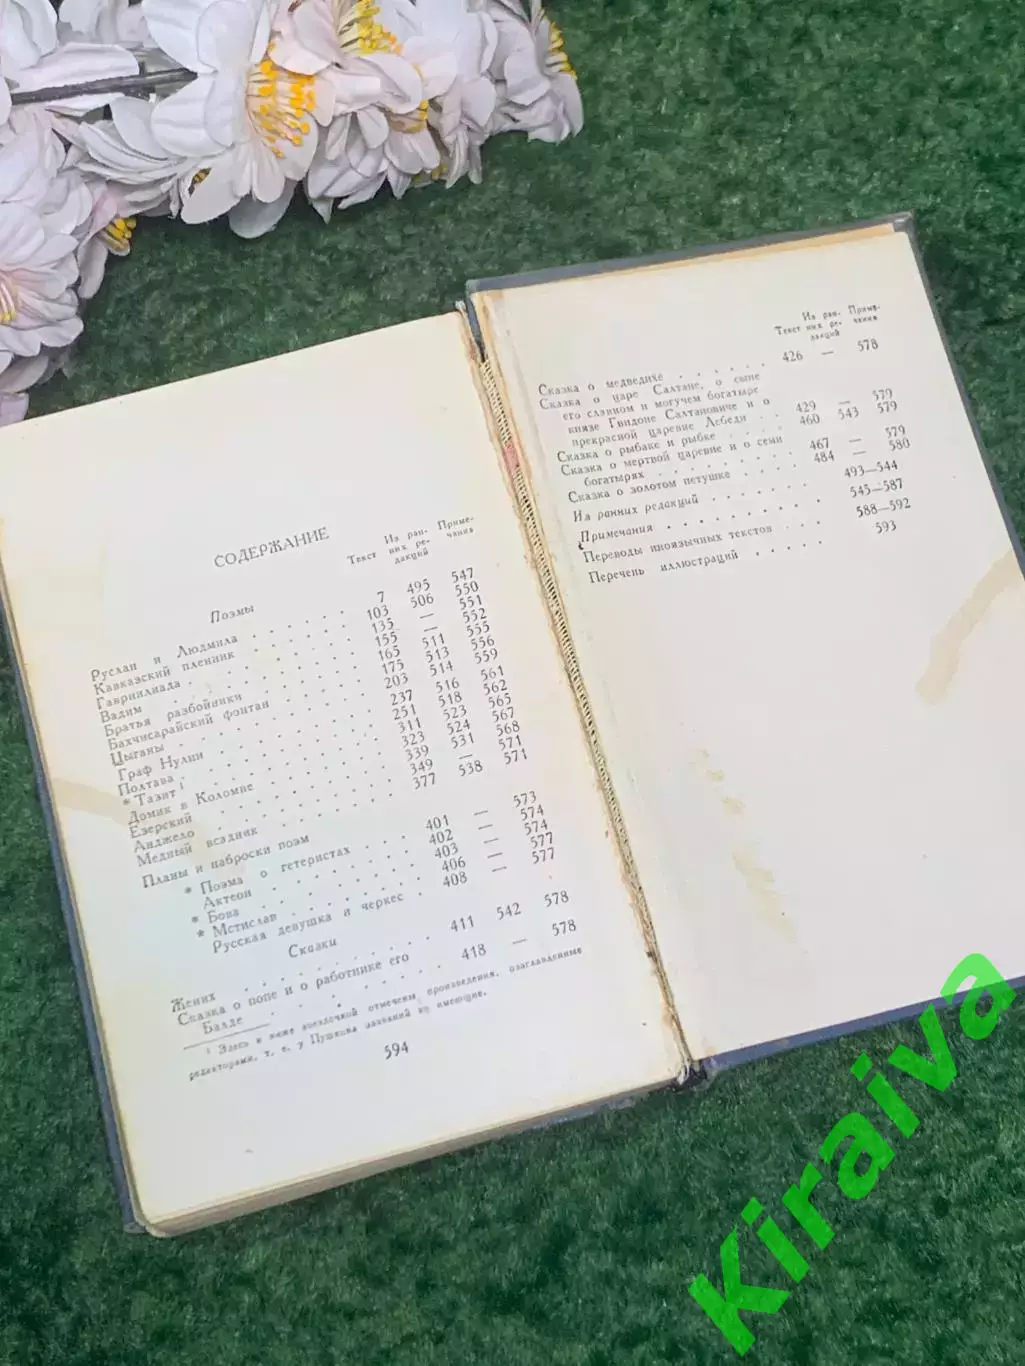 СОДЕРЖАНИЕ
Текст Из ран- них ре- дакций Приме- чания
Поэмы
Руслан и Людмила . . . . . 7 495 547
Кавказский пленник . . . . . 103 506 550
Гавриилиада . . . . . 135 — 551
Вадим . . . . . 155 — 552
Братья разбойники . . . . . 165 511 555
Бахчисарайский фонтан . . . . . 175 513 556
Цыганы . . . . . 203 514 559
Граф Нулин . . . . . 237 516 561
Полтава . . . . . 251 518 562
* Тазит 1 . . . . . 311 523 565
Домик в Коломне . . . . . 323 524 567
Езерский . . . . . 339 531 568
Анджело . . . . . 349 — 571
Медный всадник . . . . . 377 538 571
Планы и наброски поэм
* Поэма о гетеристах . . . 401 — 573
Актеон . . . . . 402 — 574
* Бова . . . . . 403 — 574
* Мстислав . . . . . 406 — 577
Русская девушка и черкес . 408 — 577
Сказки
Жених . . . . . 411 542 578
Сказка о попе и о работнике его
Балде . . . . . 418 — 578
1 Здесь и ниже звездочкой отмечены произведения, озаглавленные
редакторами, т. е. у Пушкина названий не имеющие.
594
Текст Из ран- них ре- дакций Приме- чания
Сказка о медведихе . . . . . 426 — 578
Сказка о царе Салтане, о сыне
его славном и могучем богатыре
князе Гвидоне Салтановиче и о
прекрасной царевне Лебеди . . 429 — 579
Сказка о рыбаке и рыбке . . . . 460 543 579
Сказка о мертвой царевне и о семи
богатырях . . . . . 467 — 579
Сказка о золотом петушке . . . . 484 — 580
Из ранних редакций . . . . . 493—544
Примечания . . . . . 545—587
Переводы иноязычных текстов . . . 588—592
Перечень иллюстраций . . . . . 593
Kiraiva